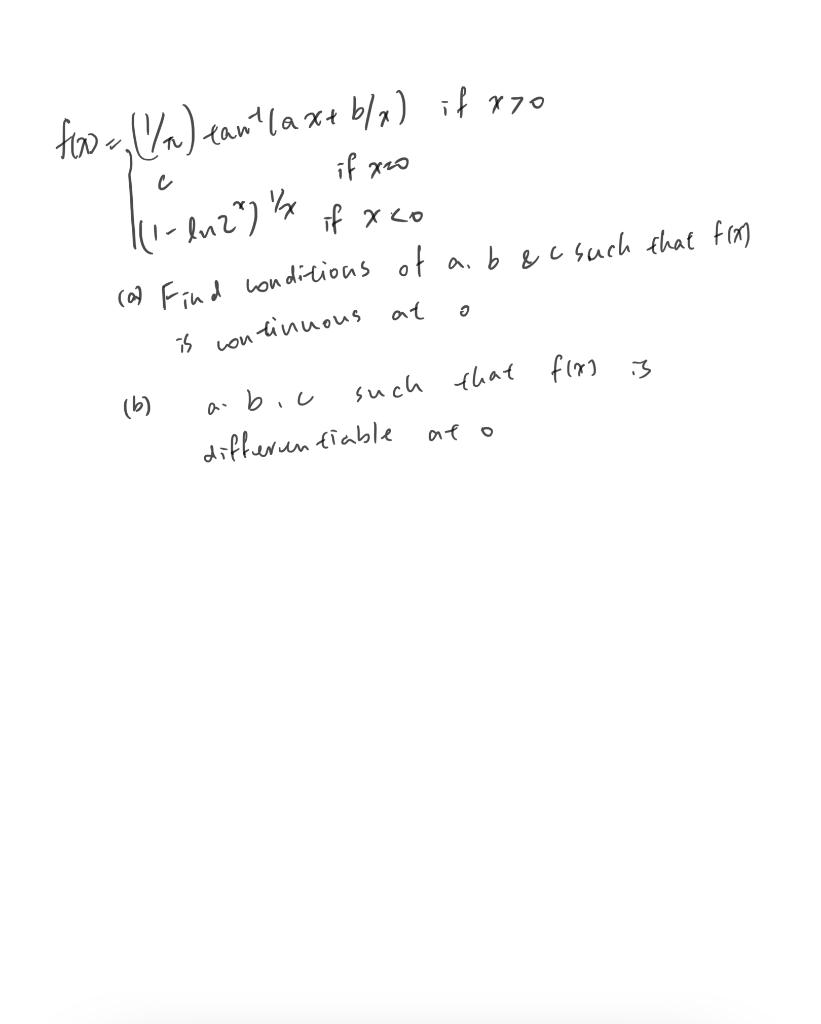 f(x) = { (1/π) tan⁻¹(ax + b/x) if x > 0
c if x=0
(1 - ln2ˣ)^1/x if x < 0
(a) Find conditions of a. b & c such that f(x)
is continuous at 0
(b) a. b, c such that f(x) is
differentiable at 0